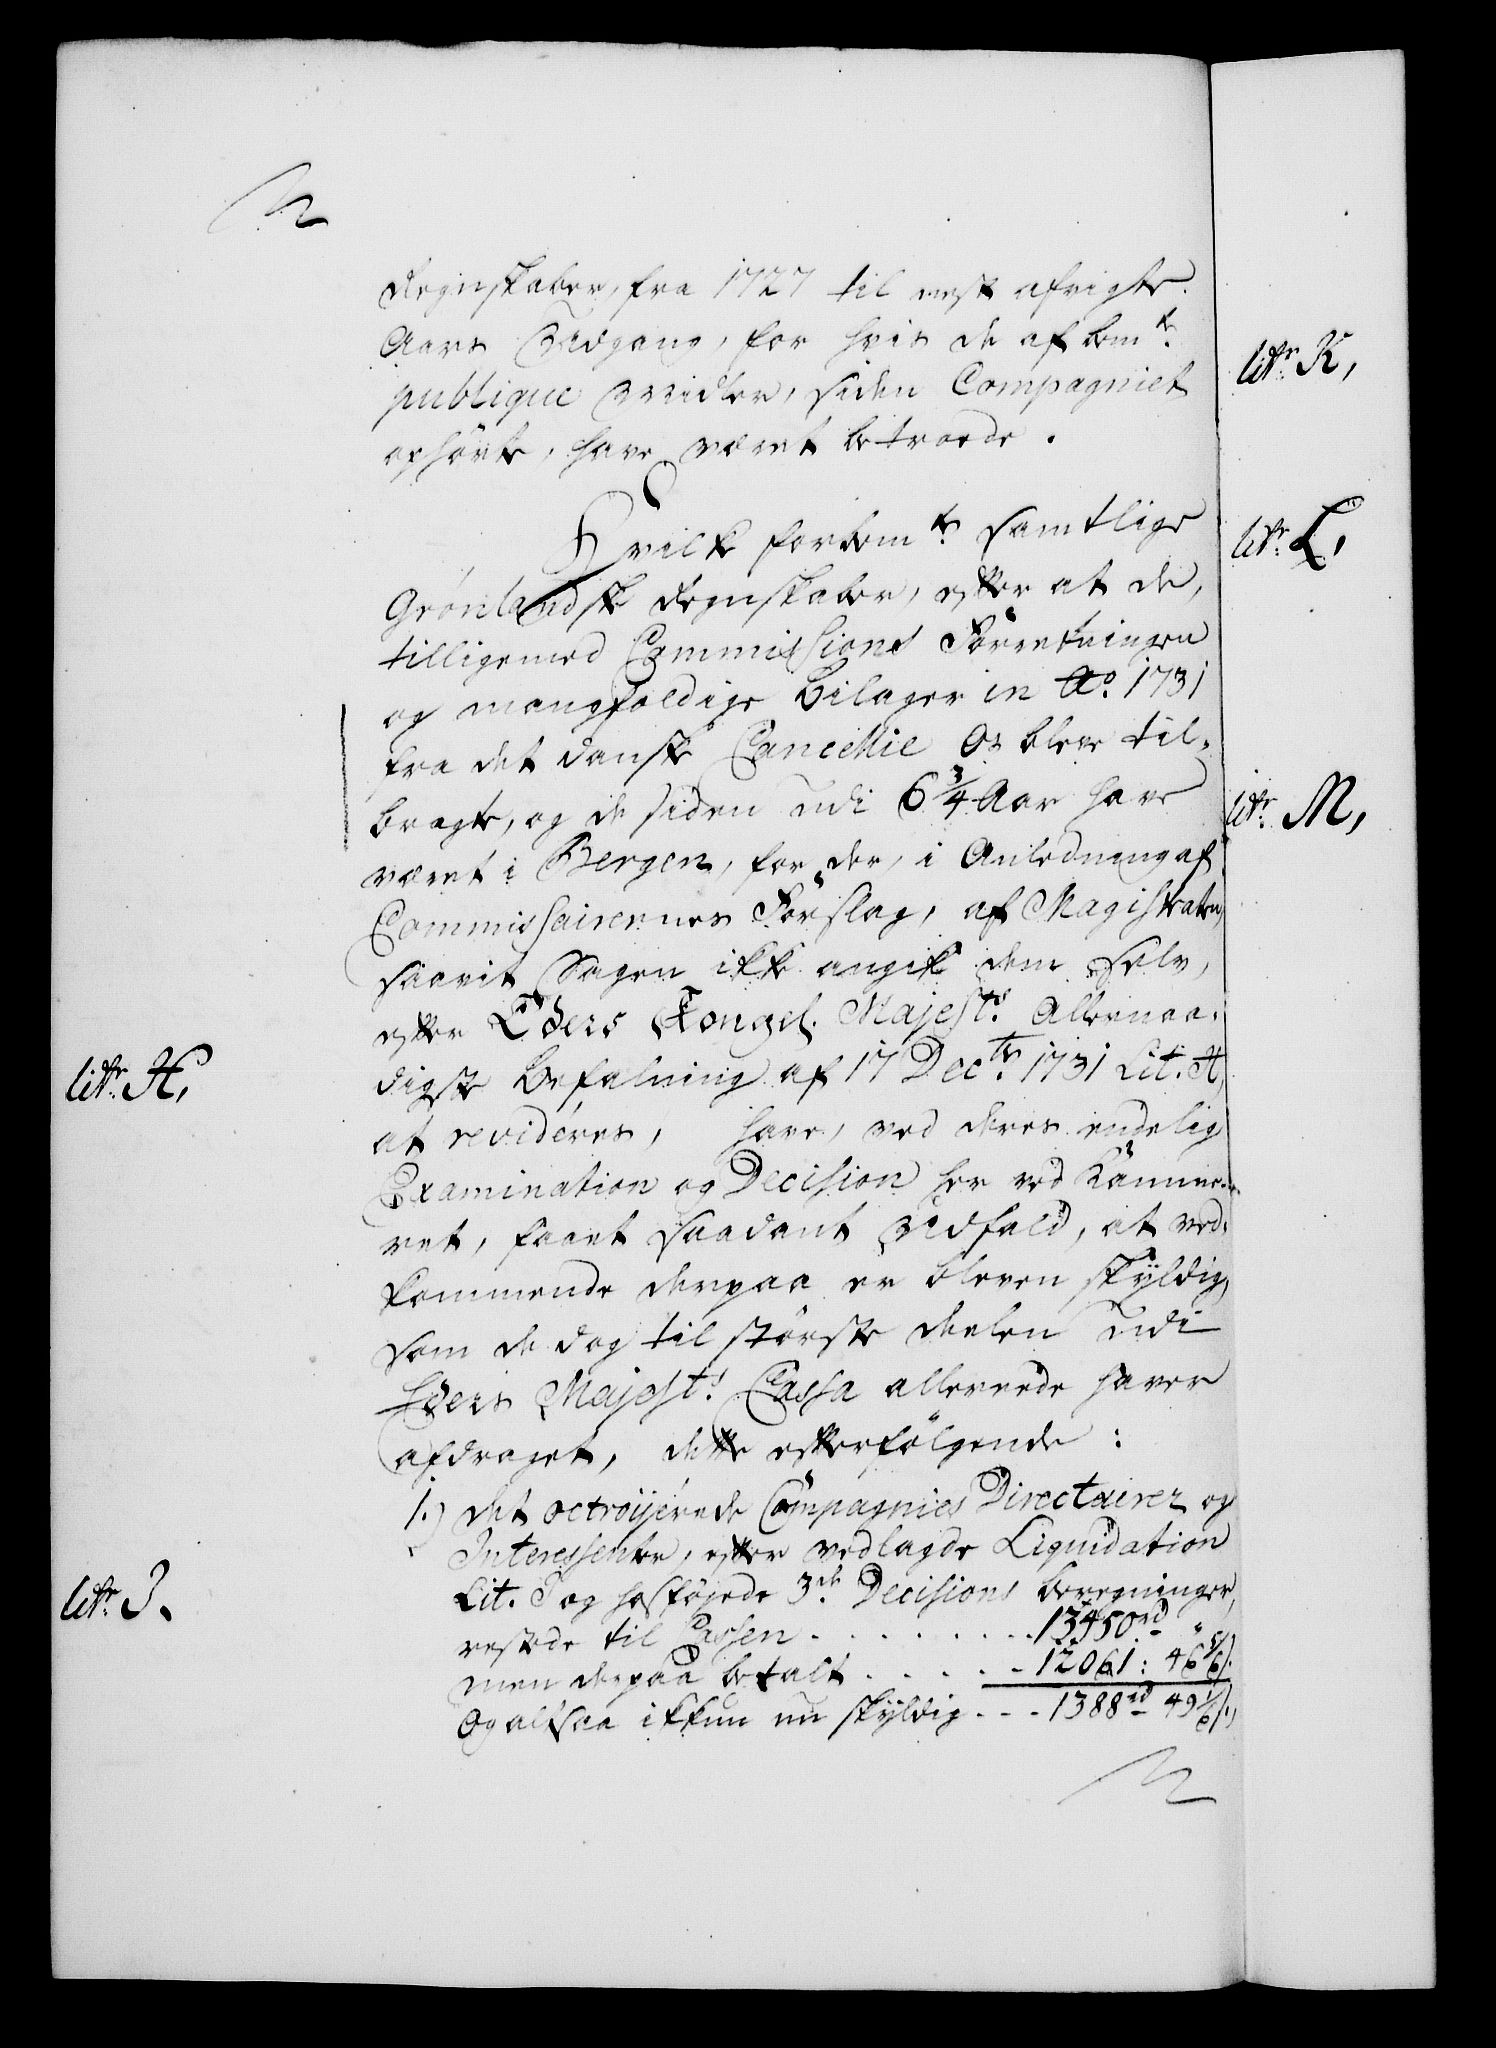 Regnskaber, fra 1727 til nest afvigte
Aars Udgang, for hvis de af bemte
publique Midler, siden Compagniet
ophörte, have været betroede.
Hvilke forbemte samtlige
Grönlandske Regnskaber, efter at de,
tilligemed Commissions Forretningen
og mangfoldige Bilager in Ao. 1731
fra det danske Cancellie Os bleve til-
bragte, og de siden udi 6 3/4 Aar have
været i Bergen, for der, i Anledning af
Commissairernes Forslag, af Magistraten,
saavit Sagen ikke angik dem selv,
efter Eders Kongel. Majests. Allernaa-
digste Befalning af 17 Decbr. 1731 Lit. H,
at revideres, have, ved deres endelig
Examination og Decision her ved Kamme-
ret, faaet saadant Udfald, at ved-
kommende derpaa er bleven skyldig,
som de dog til störste deelen udi
Eders Majests. Cassa allereede haver
afdraget, dette efterfölgende:
1.) det octroijerede Compagnies Directeurer og
Interessenter, efter vedlagde Liquidation
Lit. I og hosföjede 3de Decisions Beregninger,
restede til Cassen . . . . . . . . 13450 rd "
men derpaa betalt . . . . . - 12061: 46 5/6 s.
Og altsaa ikkun nu skyldig - - - 1388 rd 49 1/6 s.,
litr. H,
litr. I.
litr. K,
litr. L,
litr. M,